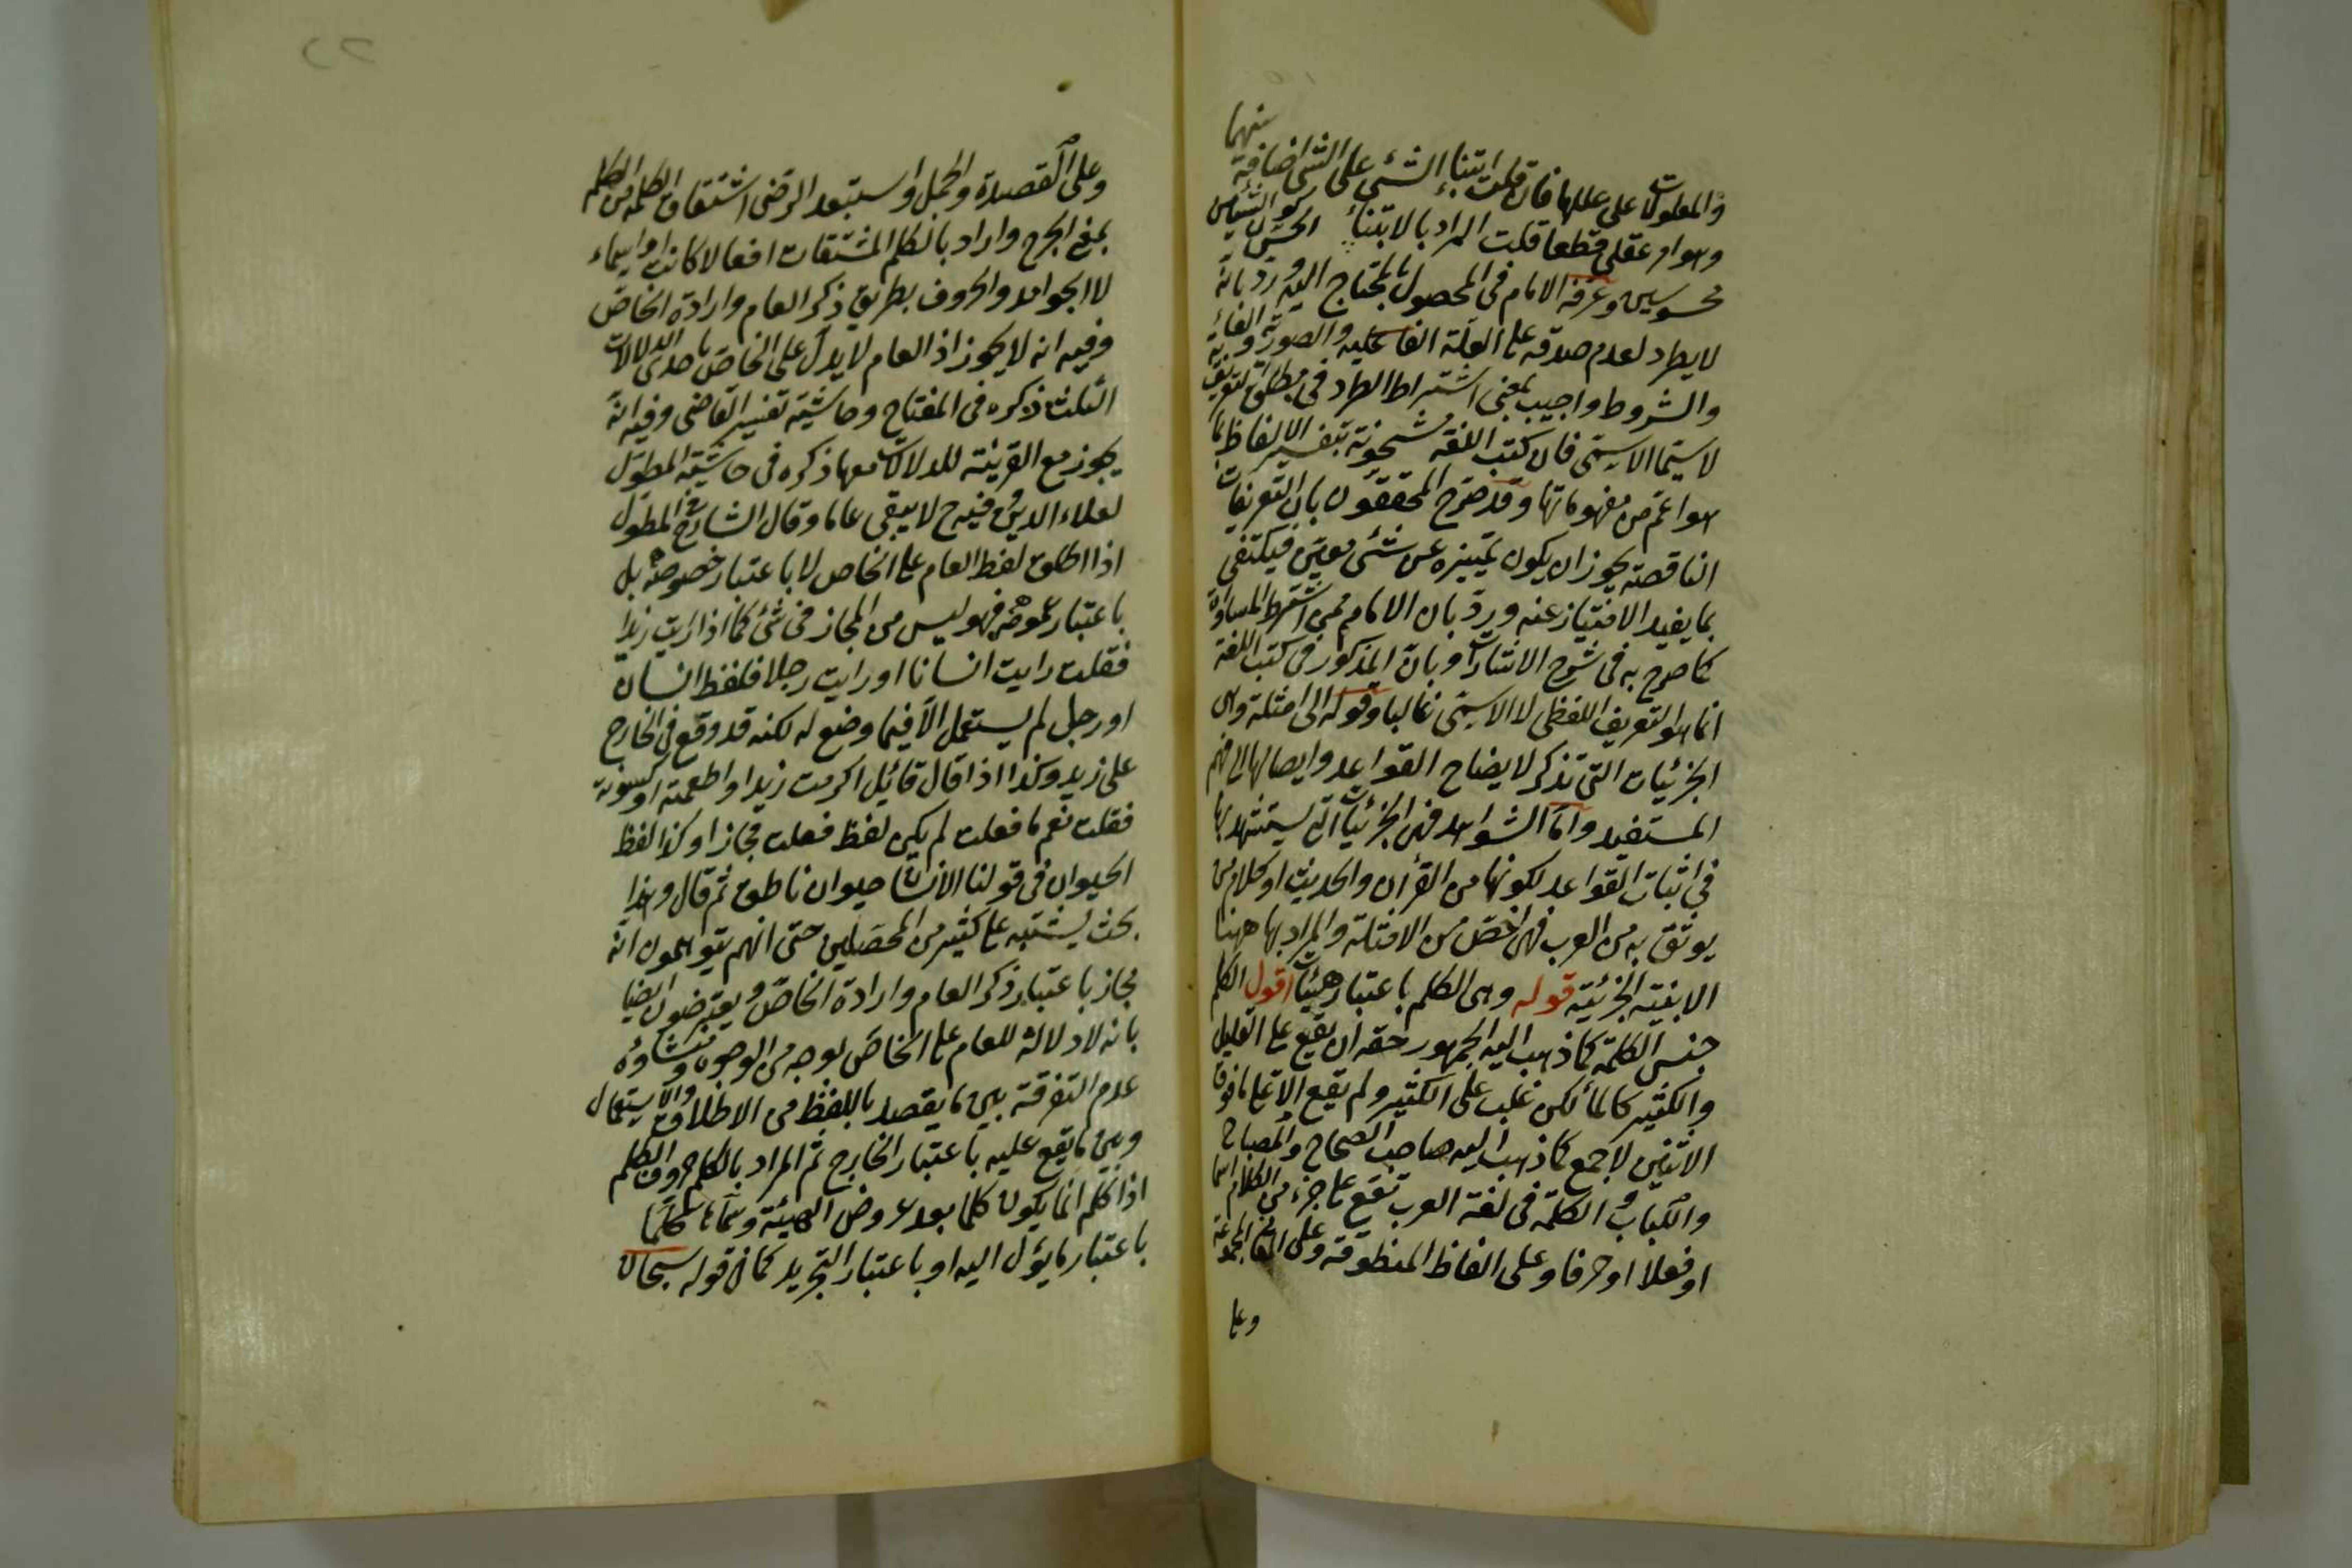 والمعلولات على عللها فان قلت ابتناء الشئ على الشئ اضافة بينهما
وهو امر عقلى قطعا قلت المراد بالابتناء الحسى كون الشيئين
محسوسين وعرفه الامام فى المحصول بالمحتاج اليه ورد بانه
لا يطرد لعدم صدقه على العلة الفاعلية والصورية والغائية
والشروط واجيب بمنع اشتراط الطرد فى مطلق التعريف
لا سيما الاسمى فان كتب اللغة مشحونة بتفسير الالفاظ بما
هو اعم من مفهوماتها وقد صرح المحققون بان التعريفات
الناقصة يجوز ان يكون تمييزه عن شئ معين فيكتفى
بما يفيد الامتياز عنه ورد بان الامام ممن اشترط المساواة
كما صرح به فى شرح الاشارات وبان المذكور فى كتب اللغة
انما هو التعريف اللفظى لا الاسمى غالبا وقوله الى امثلة وهى
الجزئيات التى تذكر لايضاح القواعد وايصالها الى فهم
المستفيد واما الشواهد فهى الجزئيات التى يستشهد بها
فى اثبات القواعد لكونها من القرآن والحديث او كلام من
يوثق به من العرب فهى اخص من الامثلة والمراد بها ههنا
الابنية الجزئية قوله وهى الكلم باعتبار هيئات اقول الكلم
جنس الكلمة كما ذهب اليه الجمهور حقه ان يقع على القليل
والكثير كالماء لكن غلب على الكثير ولم يقع الا على ما فوق
الاثنين لا جمع كما ذهب اليه صاحب الصحاح والمصباح
واللباب والكلمة فى لغة العرب تقع على جزء من الكلام اسما
او فعلا او حرفا وعلى الفاظ المنظوقة وعلى المعانى المجموعة
وعلى
وعلى القصيدة والجمل واستبعد الرضى اشتقاق الكلمة من الكلم
بمعنى الجرح واراد بالكلم المشتقات افعالا كانت او اسماء
لا الجوامد والحروف بطريق ذكر العام وارادة الخاص
وفيه انه لا يجوز اذ العام لا يدل على الخاص باحدى الدلالات
الثلث ذكره فى المفتاح وحاشية تفسير القاضى وفيه انه
يجوز مع القرينة للدلالات معها ذكره فى حاشية المطول
لعلاء الدين وفيه ح لا يبقى عاما وقال الشارح فى المطول
اذا اطلق لفظ العام على الخاص لا باعتبار خصوصه بل
باعتبار عمومه فهو ليس من المجاز فى شئ كما اذا رأيت زيدا
فقلت رايت انسانا او رايت رجلا فلفظ انسان
او رجل لم يستعمل الا فيما وضع له لكنه قد وقع فى الخارج
على زيد وكذا اذا قال قائل اكرمت زيدا واطعمته او كسوته
فقلت نعم ما فعلت لم يكن لفظ فعلت مجازا وكذا لفظ
الحيوان فى قولنا الانسان حيوان ناطق ثم قال وهذا
بحث يشتبه على كثير من المحصلين حتى انهم يتوهمون انه
مجاز باعتبار ذكر العام وارادة الخاص ويعترضون ايضا
بانه لا دلالة للعام على الخاص بوجه من الوجوه ومنشاؤه
عدم التفرقة بين ما يقصد باللفظ من الاطلاق والاستعمال
وبين ما يقع عليه باعتبار الخارج ثم المراد بالكلم حروف الكلم
اذ الكلم انما يكون كلما بعد عروض الهيئة وسماها كلما
باعتبار ما يؤل اليه او باعتبار التجريد كما فى قوله سبحان